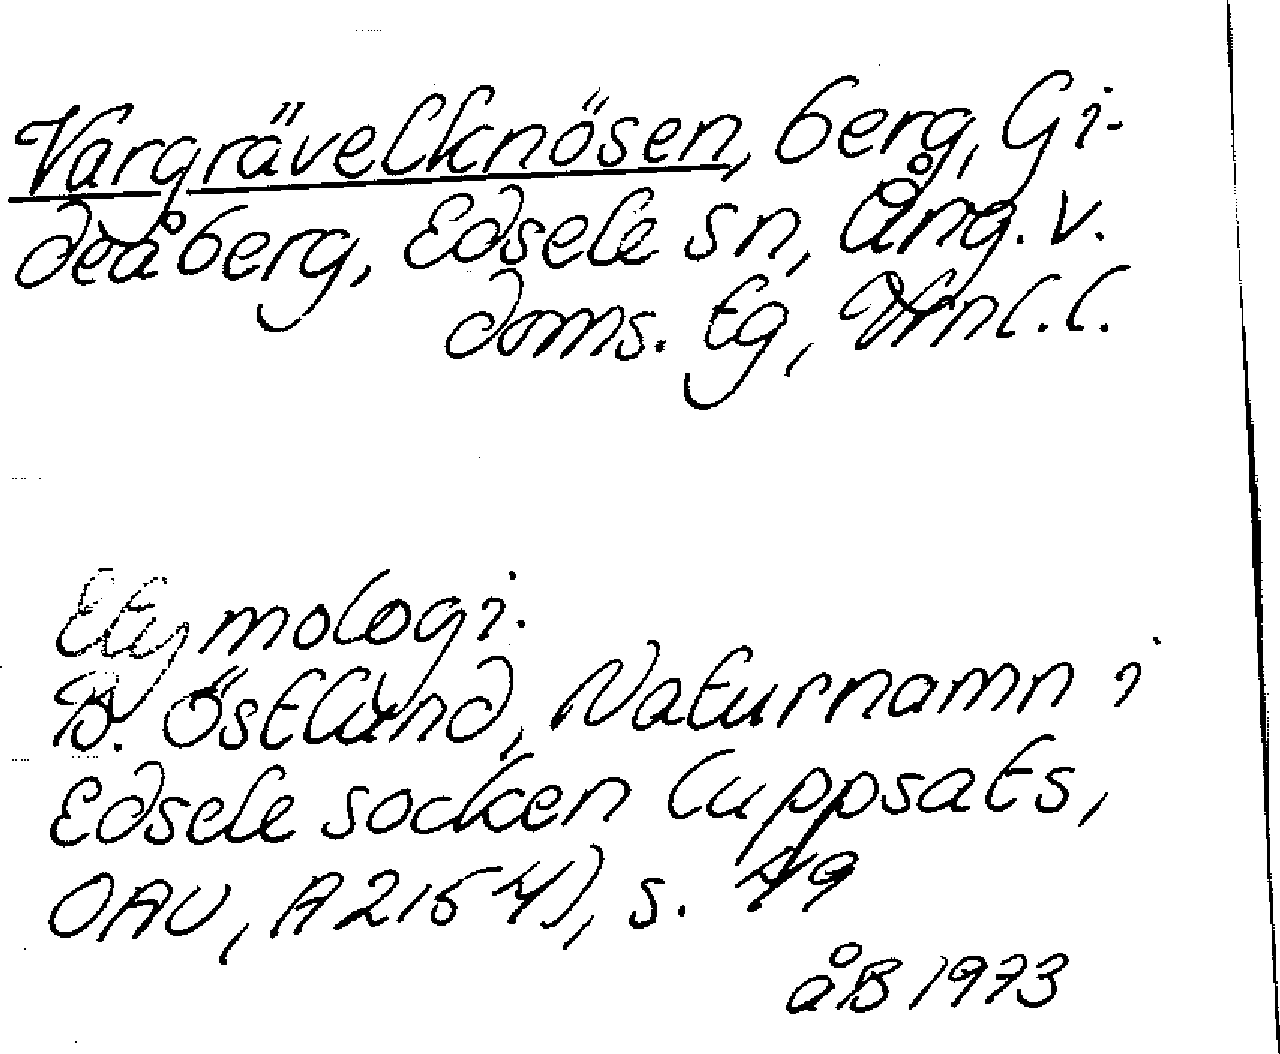 Vargrävelknösen, berg, Gi-
deåberg, Edsele sn, Ång. v.
doms. tg, Vfnl. l.
Etymologi.
B. Östlund, Naturnamn i
Edsele socken (uppsats,
OAU, A 2164), s. 49
åB 1973